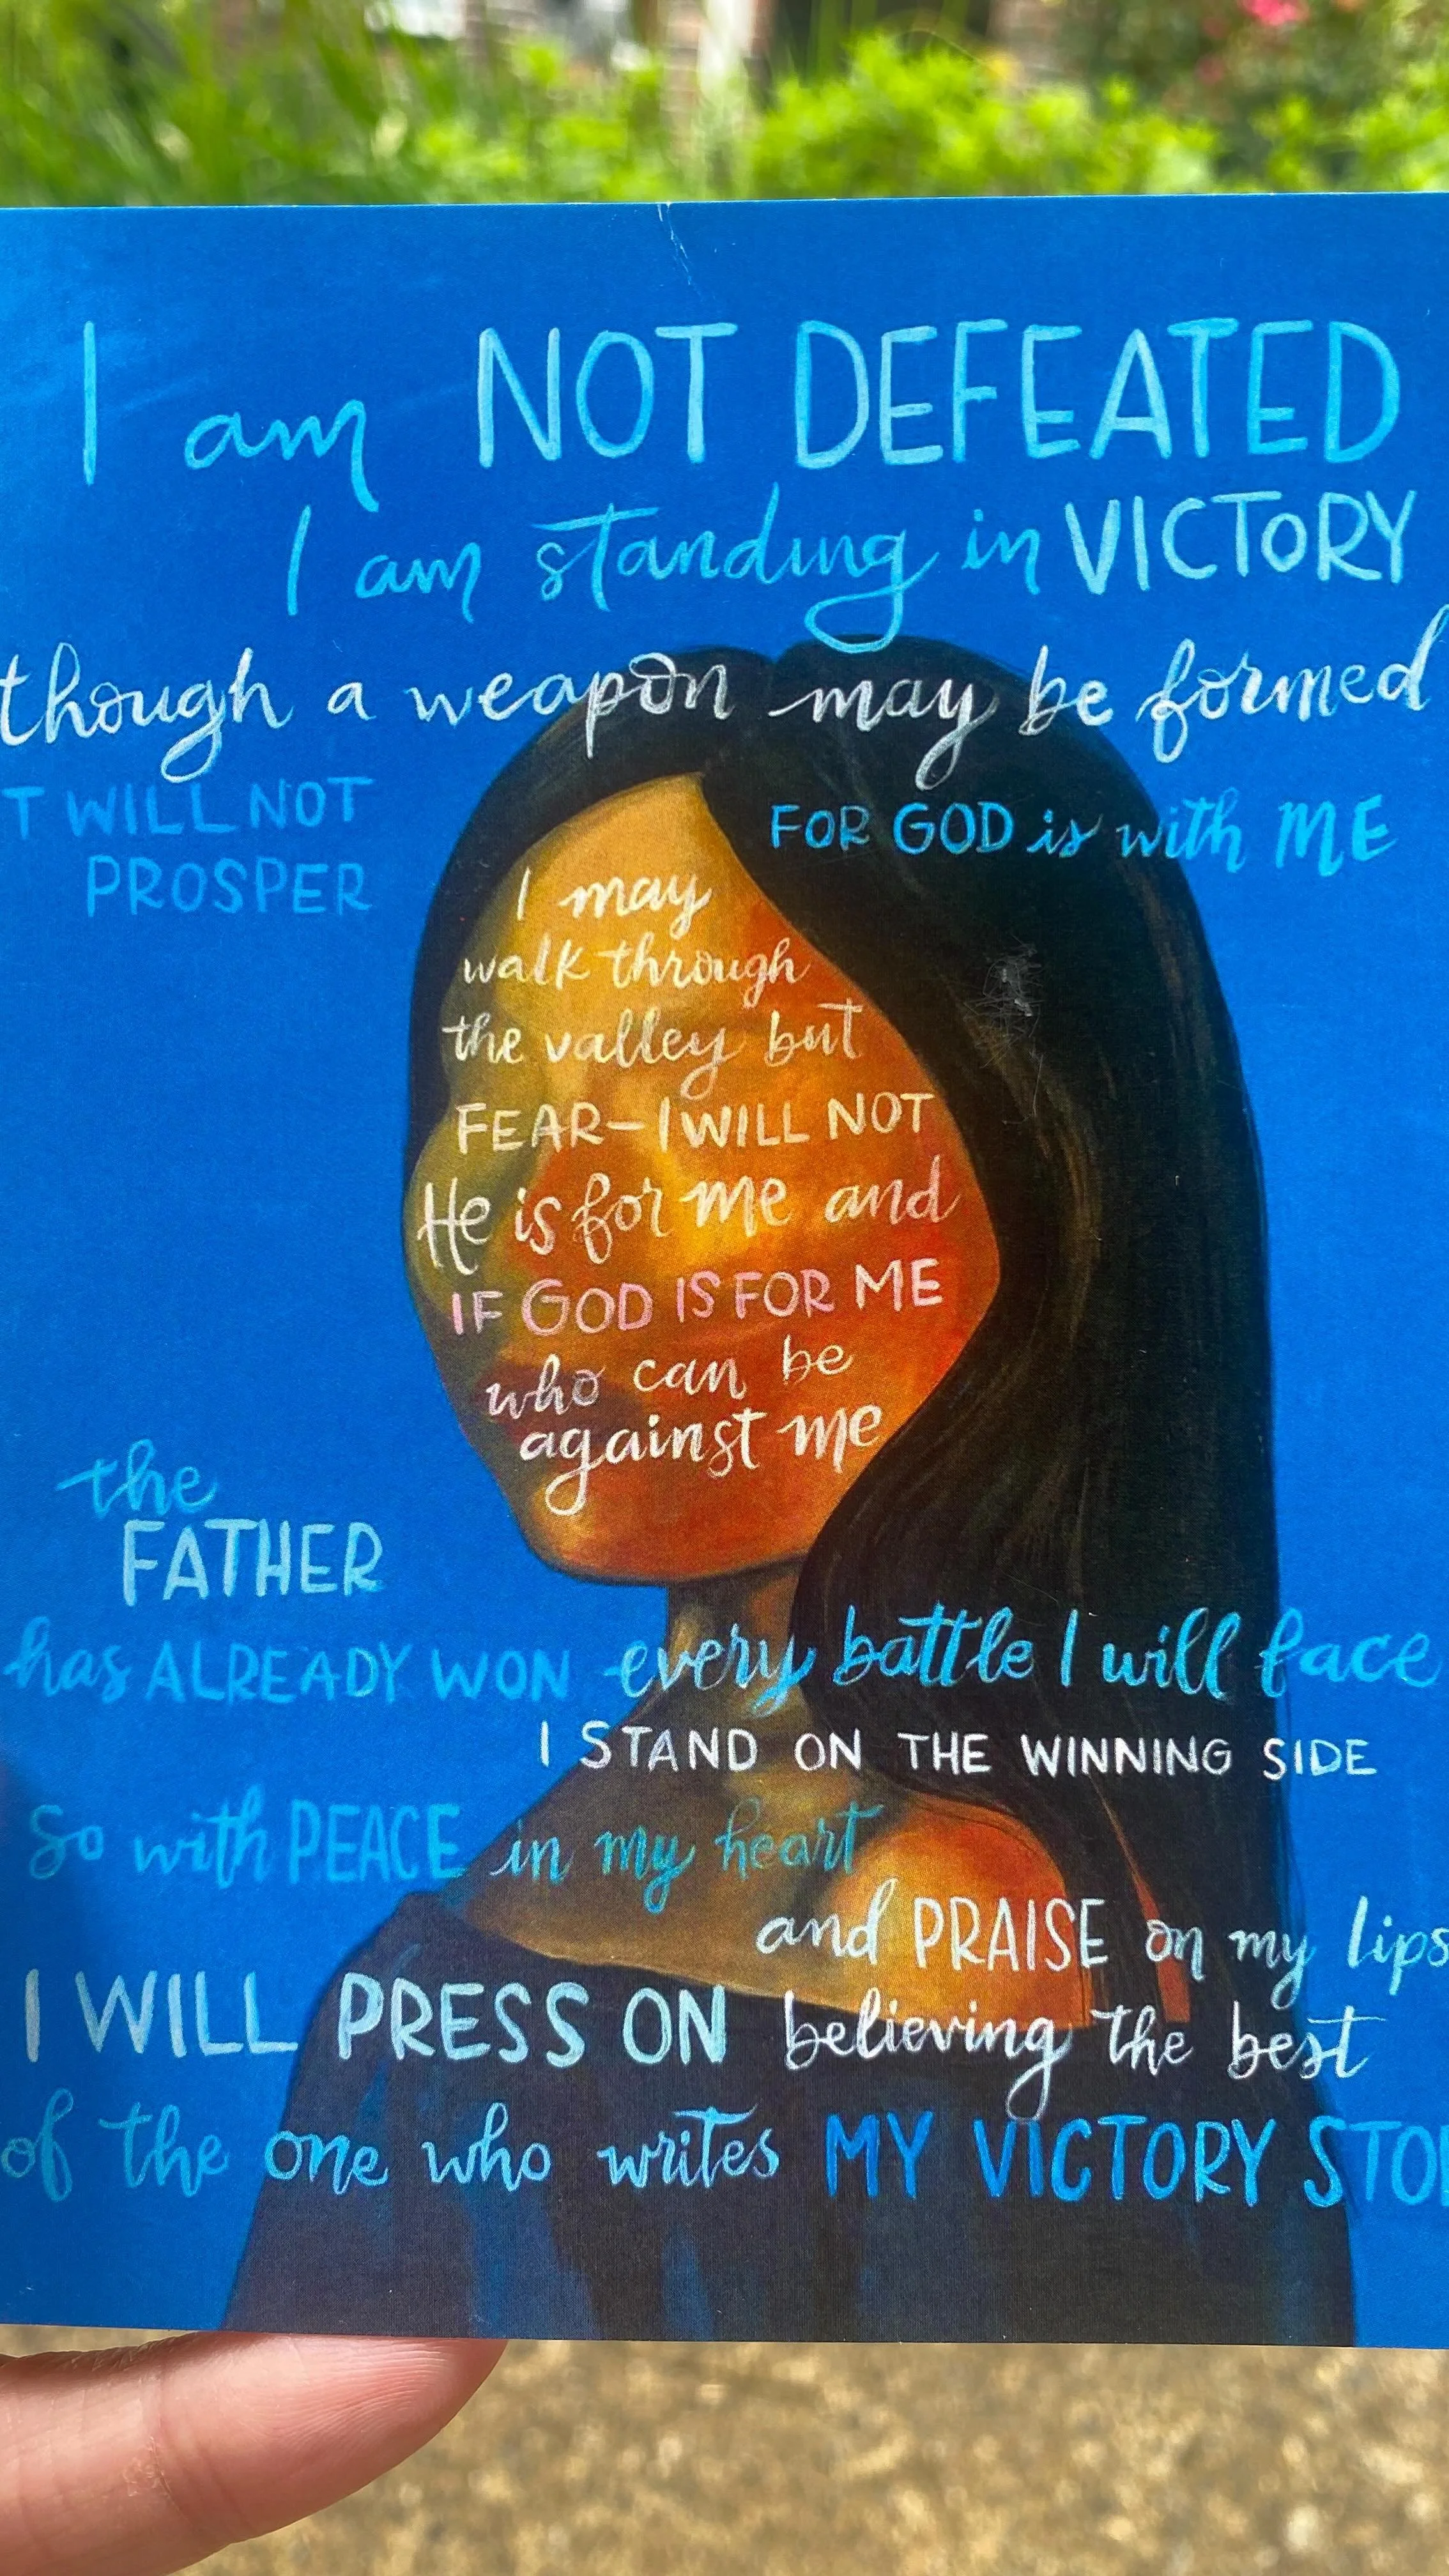 I am NOT DEFEATED
I am standing in VICTORY
though a weapon may be formed
T WILL NOT
PROSPER
FOR GOD is with ME
I may
walk through
the valley but
FEAR—I WILL NOT
He is for me and
IF GOD IS FOR ME
who can be
against me
the
FATHER
has ALREADY WON every battle I will face
I STAND ON THE WINNING SIDE
So with PEACE in my heart
and PRAISE on my lips
I WILL PRESS ON believing the best
of the one who writes MY VICTORY STO